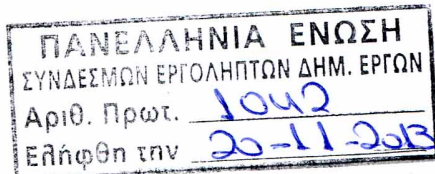 ΠΑΝΕΛΛΗΝΙΑ ΕΝΩΣΗ
ΣΥΝΔΕΣΜΩΝ ΕΡΓΟΛΗΠΤΩΝ ΔΗΜ. ΕΡΓΩΝ
Αριθ. Πρωτ. 1042
Ελήφθη την 20-11-2013